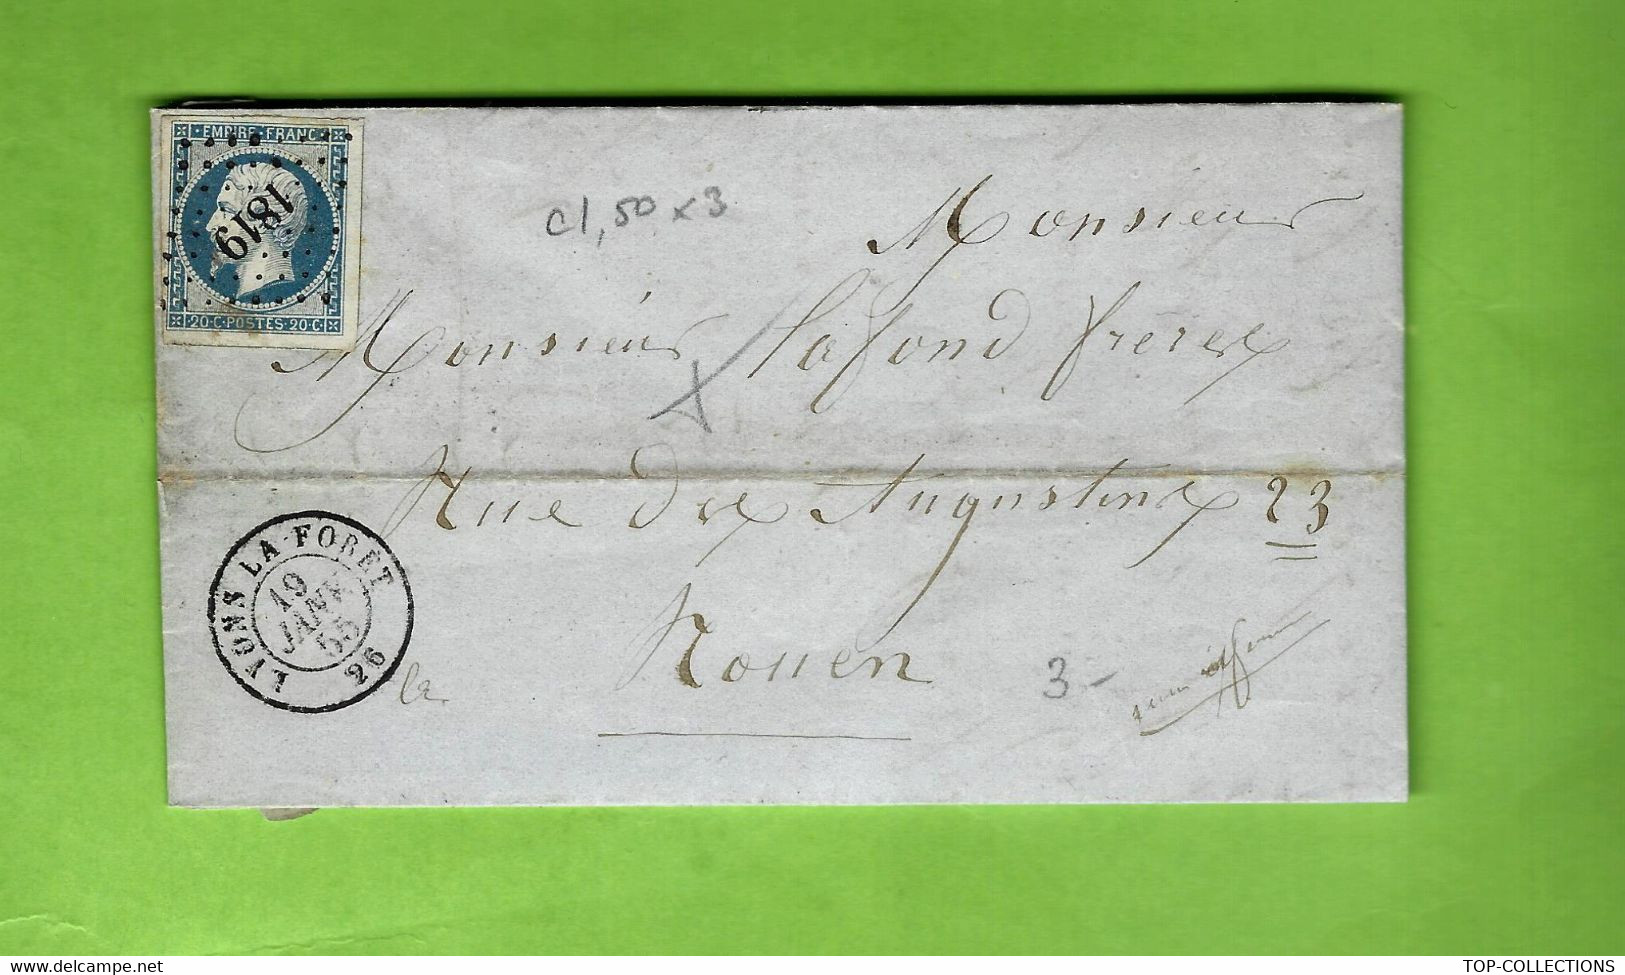 EMPIRE · FRANC
1819
20·C·POSTES·20·C
c1,50 x 3
Monsieur
Monsieur Lafond frères
Rue des Augustins 23
Rouen
LYONS LA-FORET
19
JANV.
55
26
3 -
TOP-COLLECTIONS